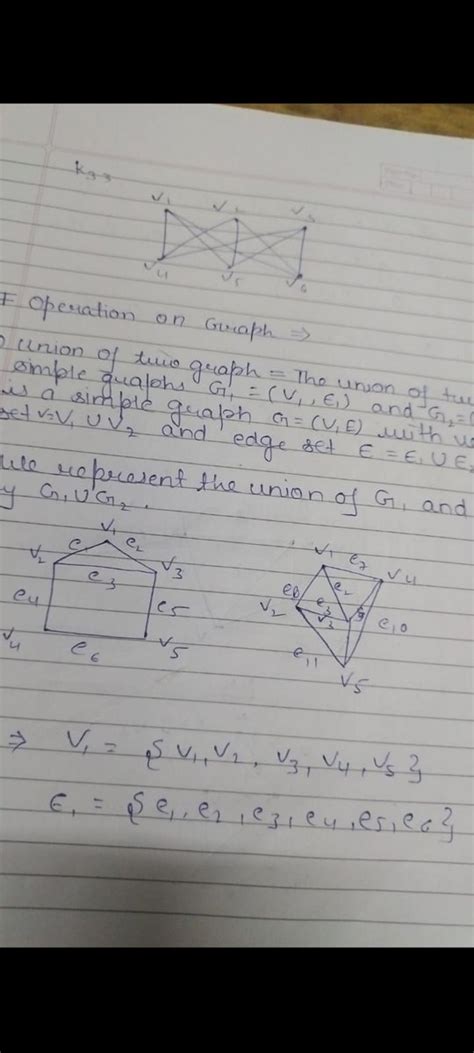 K33
V1 V2 V3
V4 V5 V6
Operation on Graph ⇒
union of two graph = The union of tw
simple graphs G1 = (V1, E1) and G2 = (
is a simple graph G = (V, E) with v
set V = V1 ∪ V2 and edge set E = E1 ∪ E
we represent the union of G1 and
y G1 ∪ G2.
V1 V1 e7
e e2 V4
V2 V3 e8 e2
e3 V2 e3
e4 e5 V3 e10
V4 e6 V5 e11
V5
⇒ V1 = { V1, V2, V3, V4, V5 }
E1 = { e1, e2, e3, e4, e5, e6 }